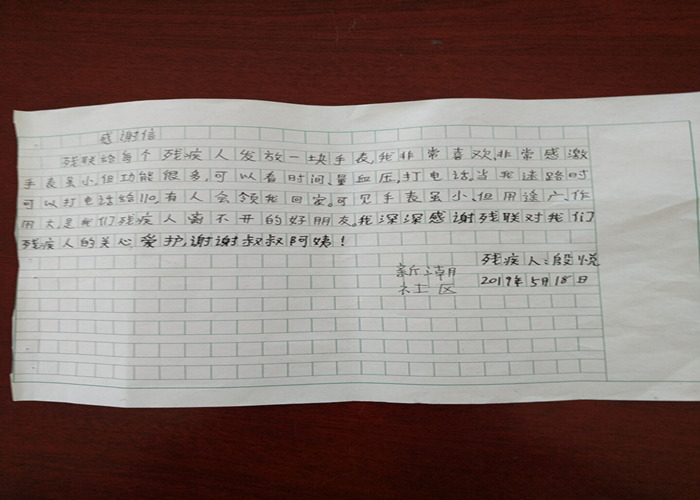 感谢信
残联给每个残疾人发放一块手表,我非常喜欢,非常感激
手表虽小,但功能很多,可以看时间、量血压,打电话,当我迷路时
可以打电话给110,有人会领我回家。可见手表虽小,但用途广、作
用大是我们残疾人离不开的好朋友,我深深感谢残联对我们
残疾人的关心爱护,谢谢叔叔阿姨!
残疾人:殷悦
新潮
社区
2019年5月18日